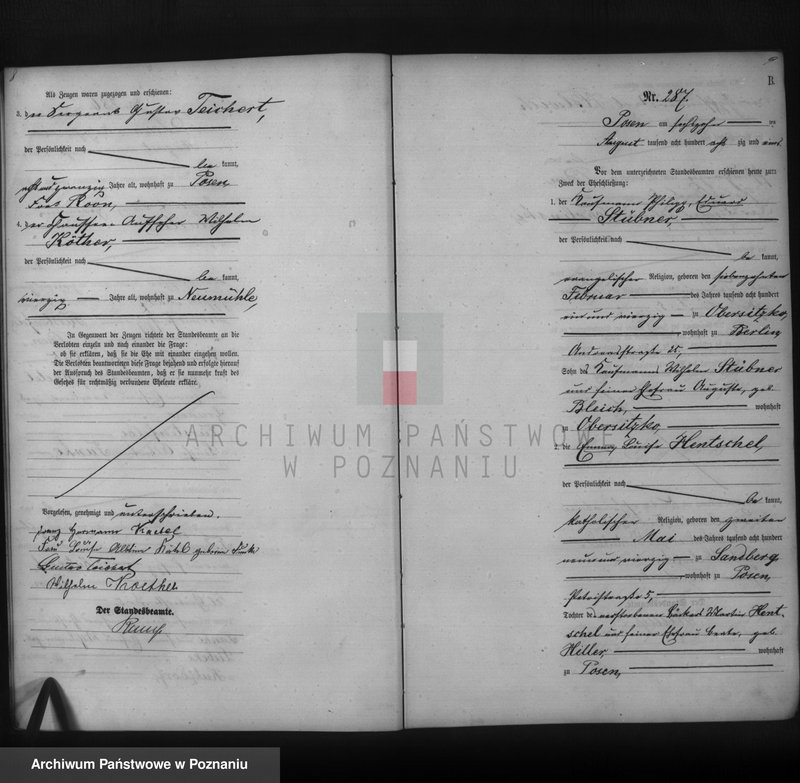 Als Zeugen waren zugezogen und erschienen:
3. der Sergeant Gustav Teichert,
der Persönlichkeit nach
be kannt,
acht und zwanzig Jahre alt, wohnhaft zu Posen
Fort Roon,
4. der Chaussee-Aufseher Wilhelm
Köther,
der Persönlichkeit nach
be kannt,
vierzig Jahre alt, wohnhaft zu Neumühle,
In Gegenwart der Zeugen richtete der Standesbeamte an die
Verlobten einzeln und nach einander die Frage:
ob sie erklären, daß sie die Ehe mit einander eingehen wollen.
Die Verlobten beantworteten diese Frage bejahend und erfolgte hierauf
der Ausspruch des Standesbeamten, daß er sie nunmehr kraft des
Gesetzes für rechtmäßig verbundene Eheleute erkläre.
Vorgelesen, genehmigt und unterschrieben.
Hermann
Louise geborene
Gustav Teichert
Wilhelm Koether
Der Standesbeamte.
B.
Nr. 287.
Posen am sechszehn ten
August tausend acht hundert acht zig und eins
Vor dem unterzeichneten Standesbeamten erschienen heute zum
Zweck der Eheschließung:
1. der Kaufmann Philipp, Eduard
Stübner,
der Persönlichkeit nach
be kannt,
evangelischer Religion, geboren den siebenzehnten
Februar des Jahres tausend acht hundert
ein und vierzig zu Obersitzko,
wohnhaft zu Berlin
Andreasstraße 25,
Sohn des Kaufmanns Wilhelm Stübner
und seiner Ehefrau Auguste, geb.
Bleich, wohnhaft
zu Obersitzko,
2. die Emma, Louise Hentschel,
der Persönlichkeit nach
be kannt,
katholischer Religion, geboren den zweiten
Mai des Jahres tausend acht hundert
neun und vierzig zu Sandberg,
wohnhaft zu Posen,
Petristraße 5,
Tochter des verstorbenen Martin Hent-
schel und seiner Ehefrau Beate, geb.
Hiller wohnhaft
zu Posen,
ARCHIWUM PAŃSTWOWE
W POZNANIU
Archiwum Państwowe w Poznaniu